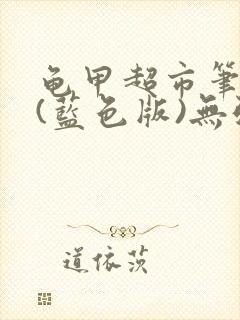 龟甲超市筆
(藍色版)無
道依茨